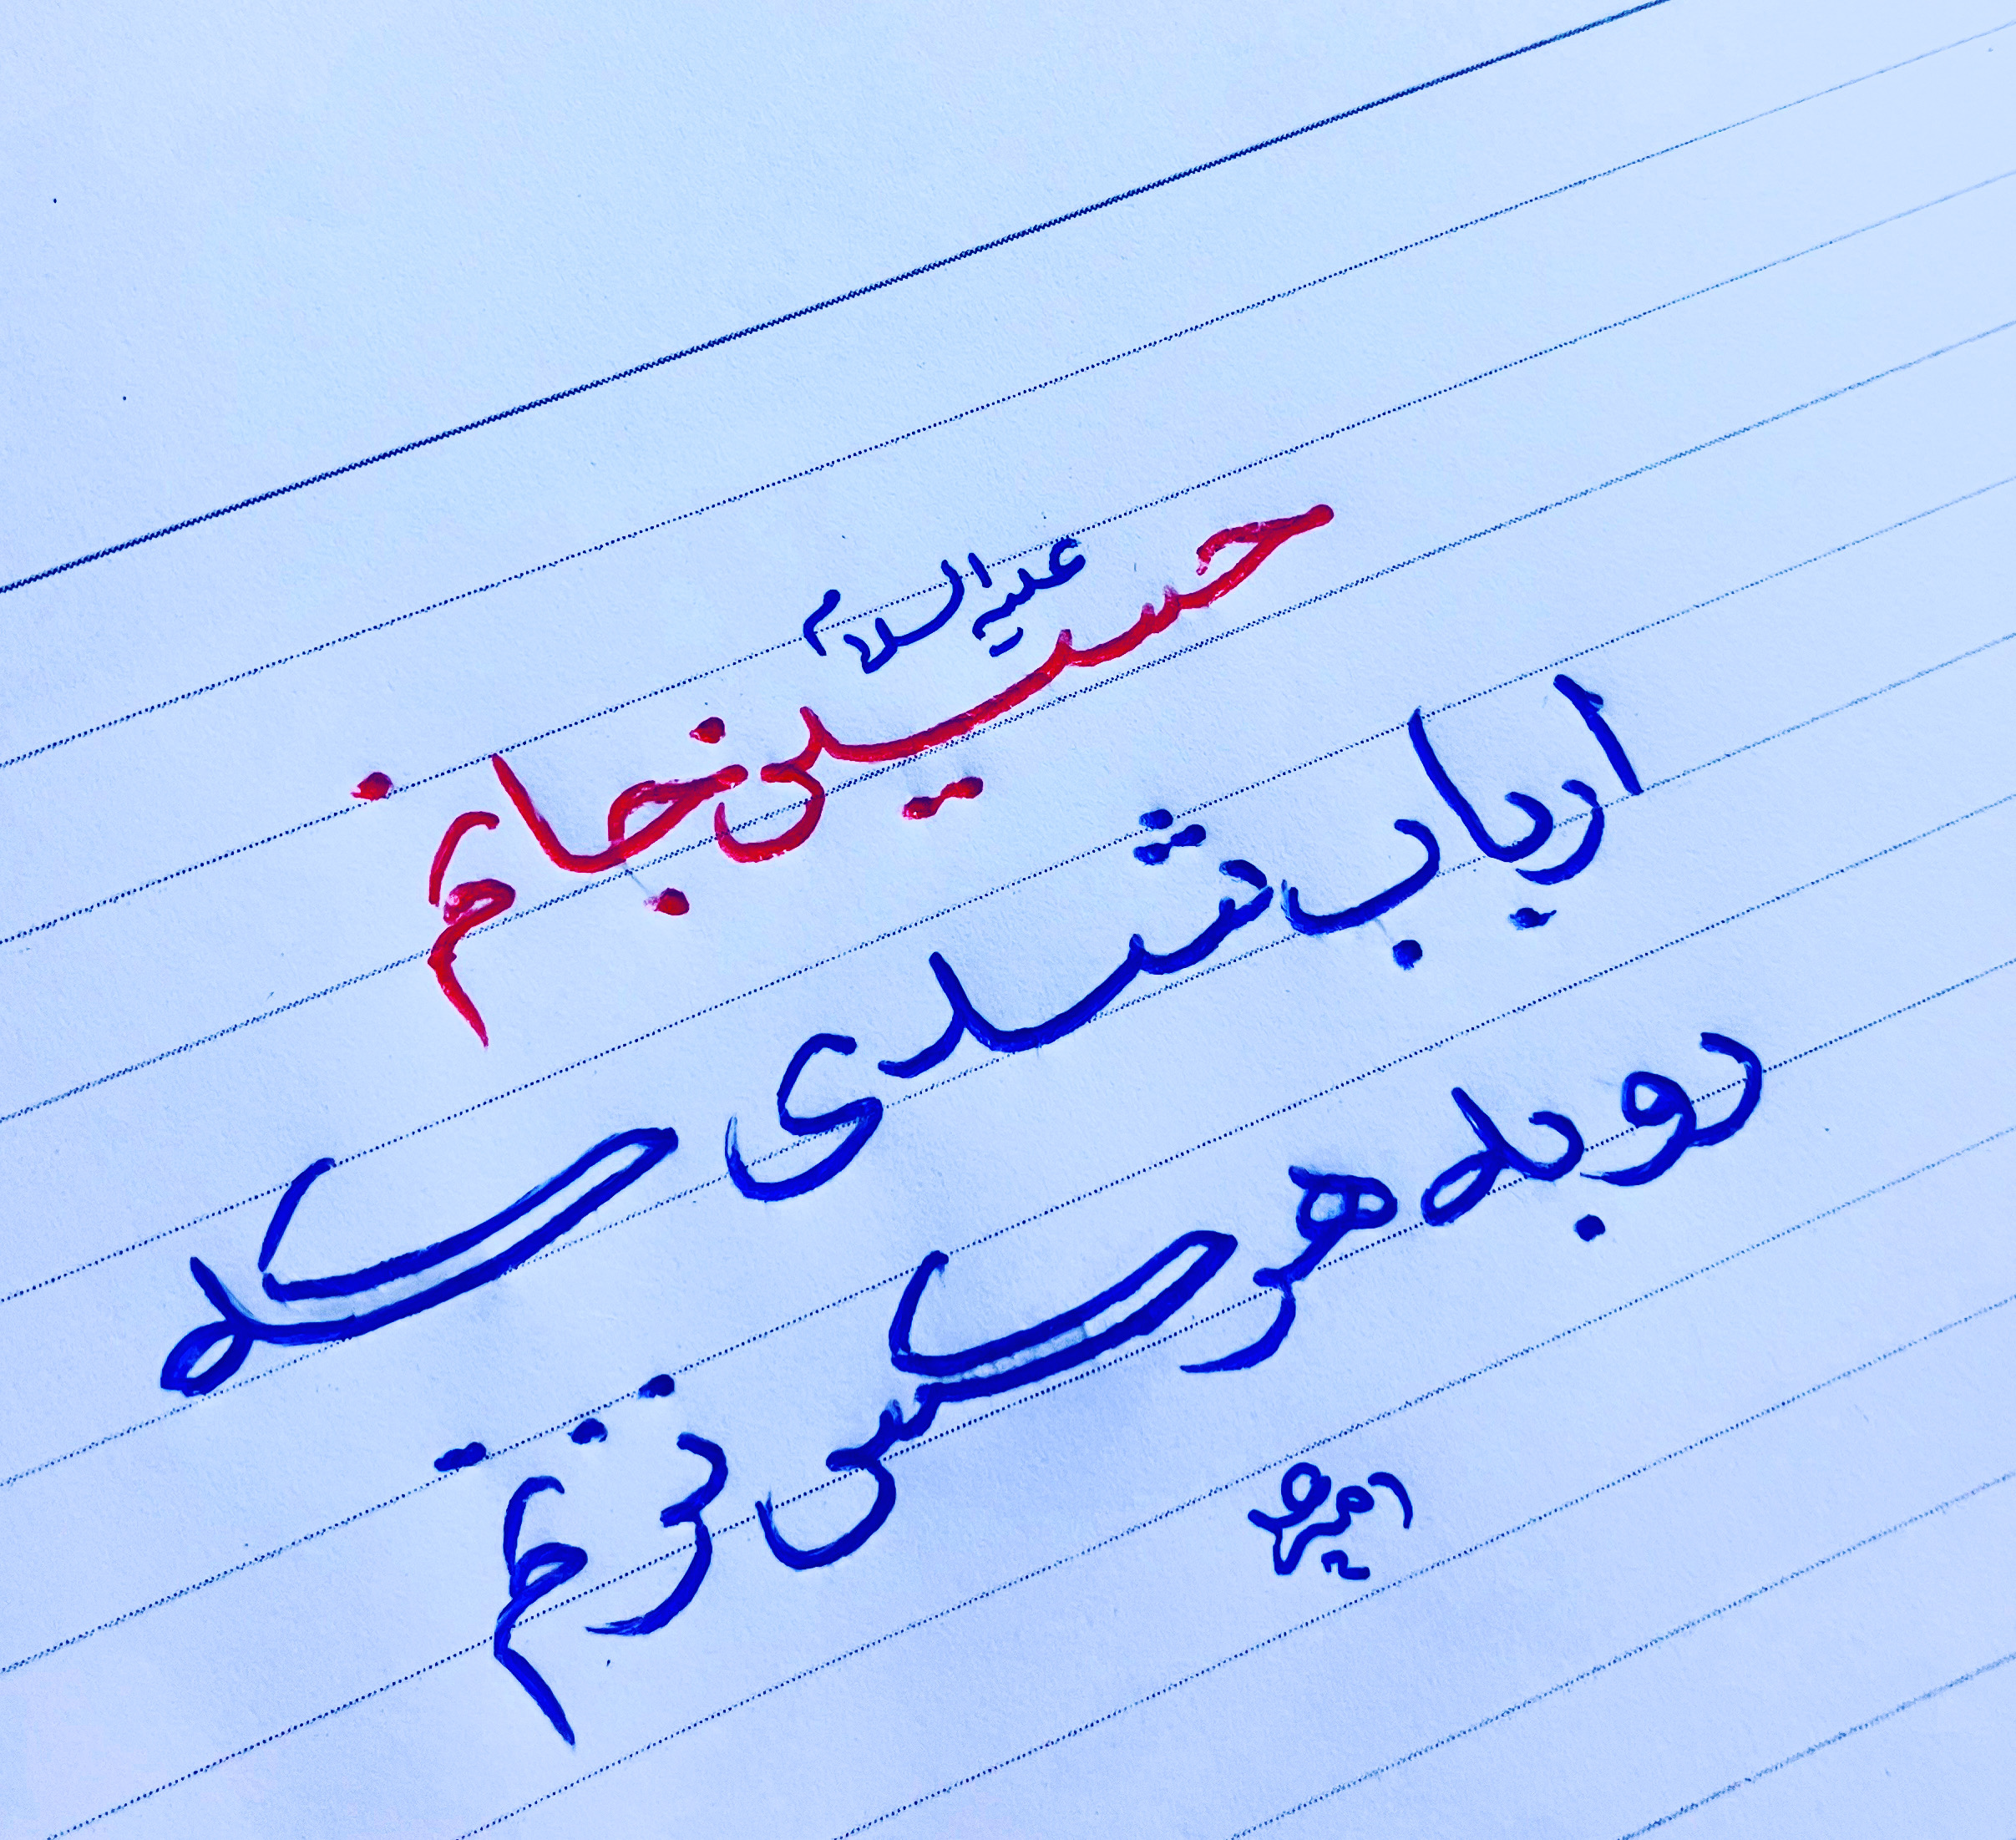 علیه السلام
حسین جانم
ارباب شدی که
رو به هر کس نزنم